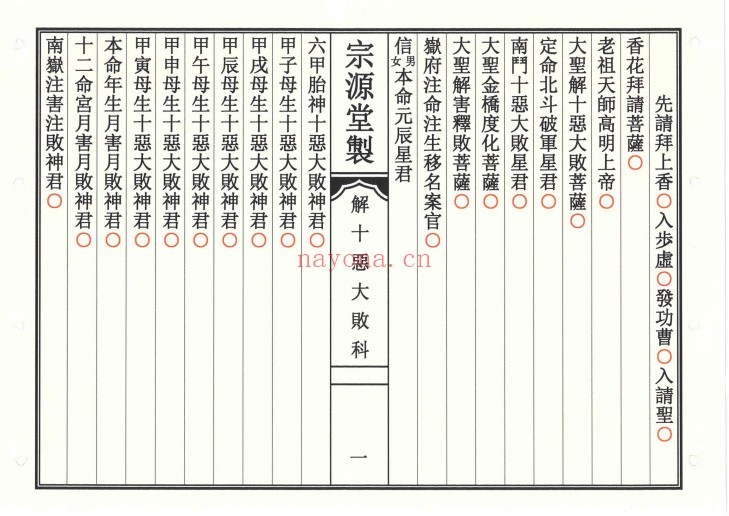 先請拜上香○入步虛○發功曹○入請聖○
香花拜請菩薩○
老祖天師高明上帝○
大聖解十惡大敗菩薩○
定命北斗破軍星君○
南鬥十惡大敗星君○
大聖金橋度化菩薩○
大聖解害釋敗菩薩○
嶽府注命注生移名案官○
信男女本命元辰星君
宗源堂製
解十惡大敗科
一
六甲胎神十惡大敗神君○
甲子母生十惡大敗神君○
甲戌母生十惡大敗神君○
甲辰母生十惡大敗神君○
甲午母生十惡大敗神君○
甲申母生十惡大敗神君○
甲寅母生十惡大敗神君○
本命年生月害月敗神君○
十二命宮月害月敗神君○
南嶽注害注敗神君○
nayona.cn